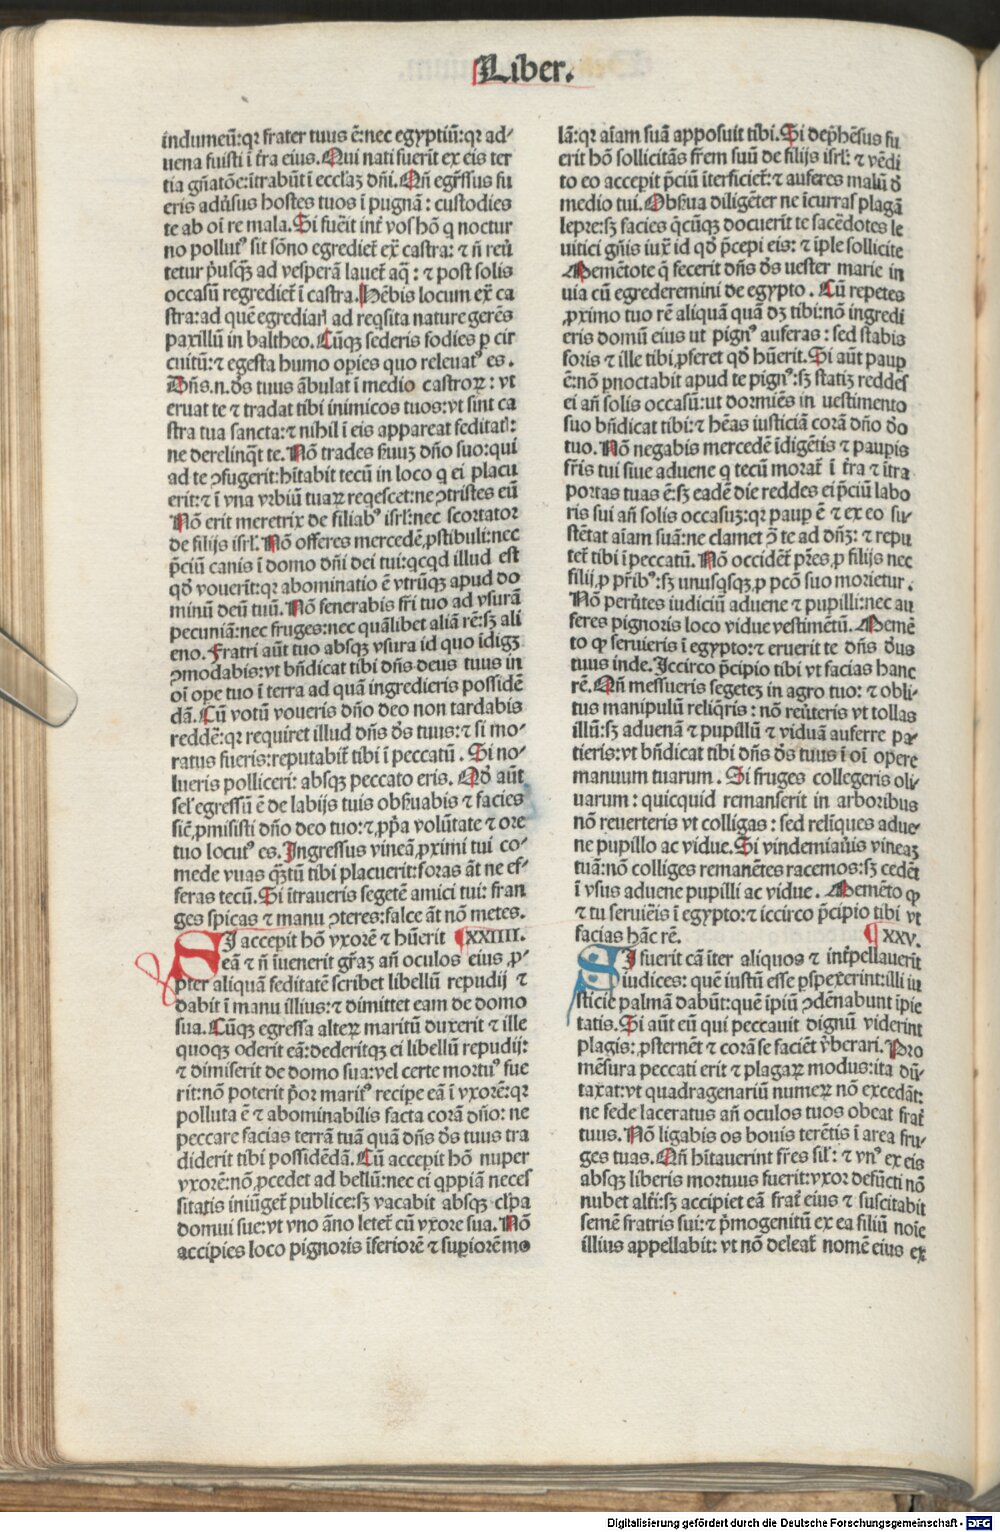 Liber.
indumeū: qꝛ frater tuus ē: nec egyptiū: qꝛ ad⸗
uena fuisti ī t̄ra eius. Qui nati fuerīt ex eis ter
tia gn̄atōe: ītrabūt ī eccl̄aꝫ dn̄i. Qn̄ egr̄ssus fu
eris adūsus hostes tuos ī pugnā: custodies
te ab oī re mala. Si fuērīt int̄ vos hō q noctur
no pollutꝰ sit sōno egrediet̄ ex̄ castra: ⁊ n̄ reū
tetur p̄usqꝫ ad vesperā lauet̄ aq̄: ⁊ post solis
occasū regrediet̄ ī castra. Hēbis locum ex̄ ca
stra: ad quē egrediar̄ ad reqsita nature gerēs
paxillū in baltheo. Cūqꝫ sederis fodies p̱ cir
cuitū: ⁊ egesta humo op̱ies quo releuatꝰ es.
Dn̄s. n. d̄s tuus ābulat ī medio castroꝝ: vt
eruat te ⁊ tradat tibi inimicos tuos: vt sint ca
stra tua sancta: ⁊ nihil ī eis appareat feditat̄:
ne derelinq̄t te. Nō trades ẜuuꝫ dn̄o suo: qui
ad te ꝯfugerit: hītabit tecū in loco q ei placu
erit: ⁊ ī vna vrbiū tuaꝝ reqescet: ne ꝯtristes eū
Nō erit meretrix de filiabꝰ isrl̄: nec scortator
de filijs isrl̄. Nō offeres mercedē ꝓstibuli: nec
p̄ciū canis ī domo dn̄i dei tui: qcqd illud est
qd̄ vouerīt: qꝛ abominatio ē vtrūqꝫ apud do
minū deū tuū. Nō fenerabis fr̄i tuo ad vsurā
pecuniā: nec fruges: nec quālibet aliā rē: sꝫ ali
eno. Fratri aūt tuo absqꝫ vsura id quo īdigꝫ
ꝯmodabis: vt bn̄dicat tibi dn̄s deus tuus in
oī ope tuo ī terra ad quā ingredieris possidē
dā. Cū votū voueris dn̄o deo non tardabis
reddē: qꝛ requiret illud dn̄s d̄s tuus: ⁊ si mo⸗
ratus fueris: reputabit̄ tibi ī peccatū. Si no⸗
lueris polliceri: absqꝫ peccato eris. Qd̄ aūt
sel̄ egressū ē de labijs tuis obẜuabis ⁊ facies
sic̄ ꝓmisisti dn̄o deo tuo: ⁊ ꝓp̄a volūtate ⁊ ore
tuo locutꝰ es. Ingressus vineā ꝓximi tui co⸗
mede vuas qꝫtū tibi placuerit: foras āt ne ef⸗
feras tecū. Si ītraueris segetē amici tui: fran
ges spicas ⁊ manu ꝯteres: falce āt nō metes.
SI accepit hō vxorē ⁊ hūerit ¶XXIIII.
eā ⁊ n̄ īuenerit gr̄aꝫ an̄ oculos eius ꝓ⸗
pter aliquā feditatē scribet libellū repudij ⁊
dabit ī manu illius: ⁊ dimittet eam de domo
sua. Cūqꝫ egressa alteꝝ maritū duxerit ⁊ ille
quoqꝫ oderit eā: dederitqꝫ ei libellū repudij:
⁊ dimiserit de domo sua: vel certe mortuꝰ fue
rit: nō poterit p̄or maritꝰ recipe eā ī vxorē: qꝛ
polluta ē ⁊ abominabilis facta corā dn̄o: ne
peccare facias terrā tuā quā dn̄s d̄s tuus tra
diderit tibi possidēdā. Cū accepit hō nuper
vxorē: nō ꝓcedet ad bellū: nec ei qppiā neces
sitatis iniūget̄ publice: sꝫ vacabit absqꝫ cl̄pa
domui sue: vt vno āno letet̄ cū vxore sua. Nō
accipies loco pignoris īferiorē ⁊ sup̱iorē mo
lā: qꝛ aīam suā apposuit tibi. Si dep̄hēsus fu
erit hō sollicitās fr̄em suū de filijs isrl̄: ⁊ vēdi
to eo accepit p̄ciū īterficiet̄: ⁊ auferes malū d̄
medio tui. Obẜua diligēter ne īcurras plagā
lepre: sꝫ facies qcūqꝫ docuerīt te sacēdotes le
uitici gn̄is iux̄ id qd̄ p̄cepi eis: ⁊ īple sollicite
Memētote q̄ fecerit dn̄s d̄s vester marie in
via cū egrederemini de egypto. Cū repetes
ꝓximo tuo rē aliquā quā dꝫ tibi: nō ingredi
eris domū eius vt pignꝰ auferas: sed stabis
foris ⁊ ille tibi ꝓferet qd̄ hūerit. Si aūt paup̱
ē: nō p̱noctabit apud te pignꝰ: sꝫ statiꝫ reddes
ei an̄ solis occasū: ut dormiēs in uestimento
suo bn̄dicat tibi: ⁊ hēas iusticiā corā dn̄o d̄o
tuo. Nō negabis mercedē īdigētis ⁊ paup̱is
fr̄is tui siue aduene q tecū morat̄ ī t̄ra ⁊ īt̄ra
portas tuas ē: sꝫ eadē die reddes ei p̄ciū labo
ris sui an̄ solis occasuꝫ: qꝛ paup̱ ē ⁊ ex eo su⸗
stētat aīam suā: ne clamet ꝯ̄ te ad dn̄ꝫ: ⁊ repu
tet̄ tibi ī peccatū. Nō occidēt̄ pr̄es ꝓ filijs nec
filij ꝓ pr̄ibꝰ: sꝫ unusqsqꝫ ꝓ pcō suo morietur.
Nō peruꝰtes iudiciū aduene ⁊ pupilli: nec au
feres pignoris loco vidue vestimētū. Memē
to qꝙ seruieris ī egypto: ⁊ eruerit te dn̄s d̄us
tuus inde. Iccirco p̄cipio tibi vt facias hanc
rē. Qn̄ messueris segeteꝫ in agro tuo: ⁊ obli⸗
tus manipulū reliq̄ris: nō reūteris vt tollas
illū: sꝫ aduenā ⁊ pupillū ⁊ viduā auferre pa⸗
tieris: vt bn̄dicat tibi dn̄s d̄s tuus ī oī opere
manuum tuarum. Si fruges collegeris oli⸗
uarum: quicquid remanserit in arboribus
nō reuerteris vt colligas: sed relīques adue⸗
ne pupillo ac vidue. Si vindemiaūis vineaꝫ
tuā: nō colliges remanētes racemos: sꝫ cedēt
ī vsus aduene pupilli ac vidue. Memēto ꝙ
⁊ tu seruiēis ī egypto: ⁊ iccirco p̄cipio tibi vt
facias hāc rē. ¶XXV.
SI fuerit cā īter aliquos ⁊ int̄pellauerīt
iudices: quē iustū esse p̱spexerīnt: illi iu
sticie palmā dabūt: quē īpiū ꝯdēnabunt īpie
tatis. Si aūt eū qui peccauit dignū viderint
plagis: ꝓsternēt ⁊ corā se faciēt v̄berari. Pro
mēsura peccati erit ⁊ plagaꝝ modus: ita dū⸗
taxat: vt quadragenariū numeꝝ nō excedāt:
ne fede laceratus an̄ oculos tuos obeat frat̄
tuus. Nō ligabis os bouis terētis ī area fru⸗
ges tuas. Qn̄ hītauerint fr̄es sil̄: ⁊ vnꝰ ex eis
absqꝫ liberis mortuus fuerit: vxor defūcti nō
nubet alt̄i: sꝫ accipiet eā frat̄ eius ⁊ suscitabit
semē fratris sui: ⁊ p̄mogenitū ex ea filiū noīe
illius appellabit: vt nō deleat̄ nomē eius ex
Digitalisierung gefördert durch die Deutsche Forschungsgemeinschaft - DFG